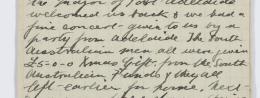 the Mayor of Port Adelaide
welcomed us back & we had a
fine concert given to us by a
party from Adelaide. The South
Australian men all were given
£5-0-0 Xmas Gift from the South
Australian Funds & they all
left earlier for home,